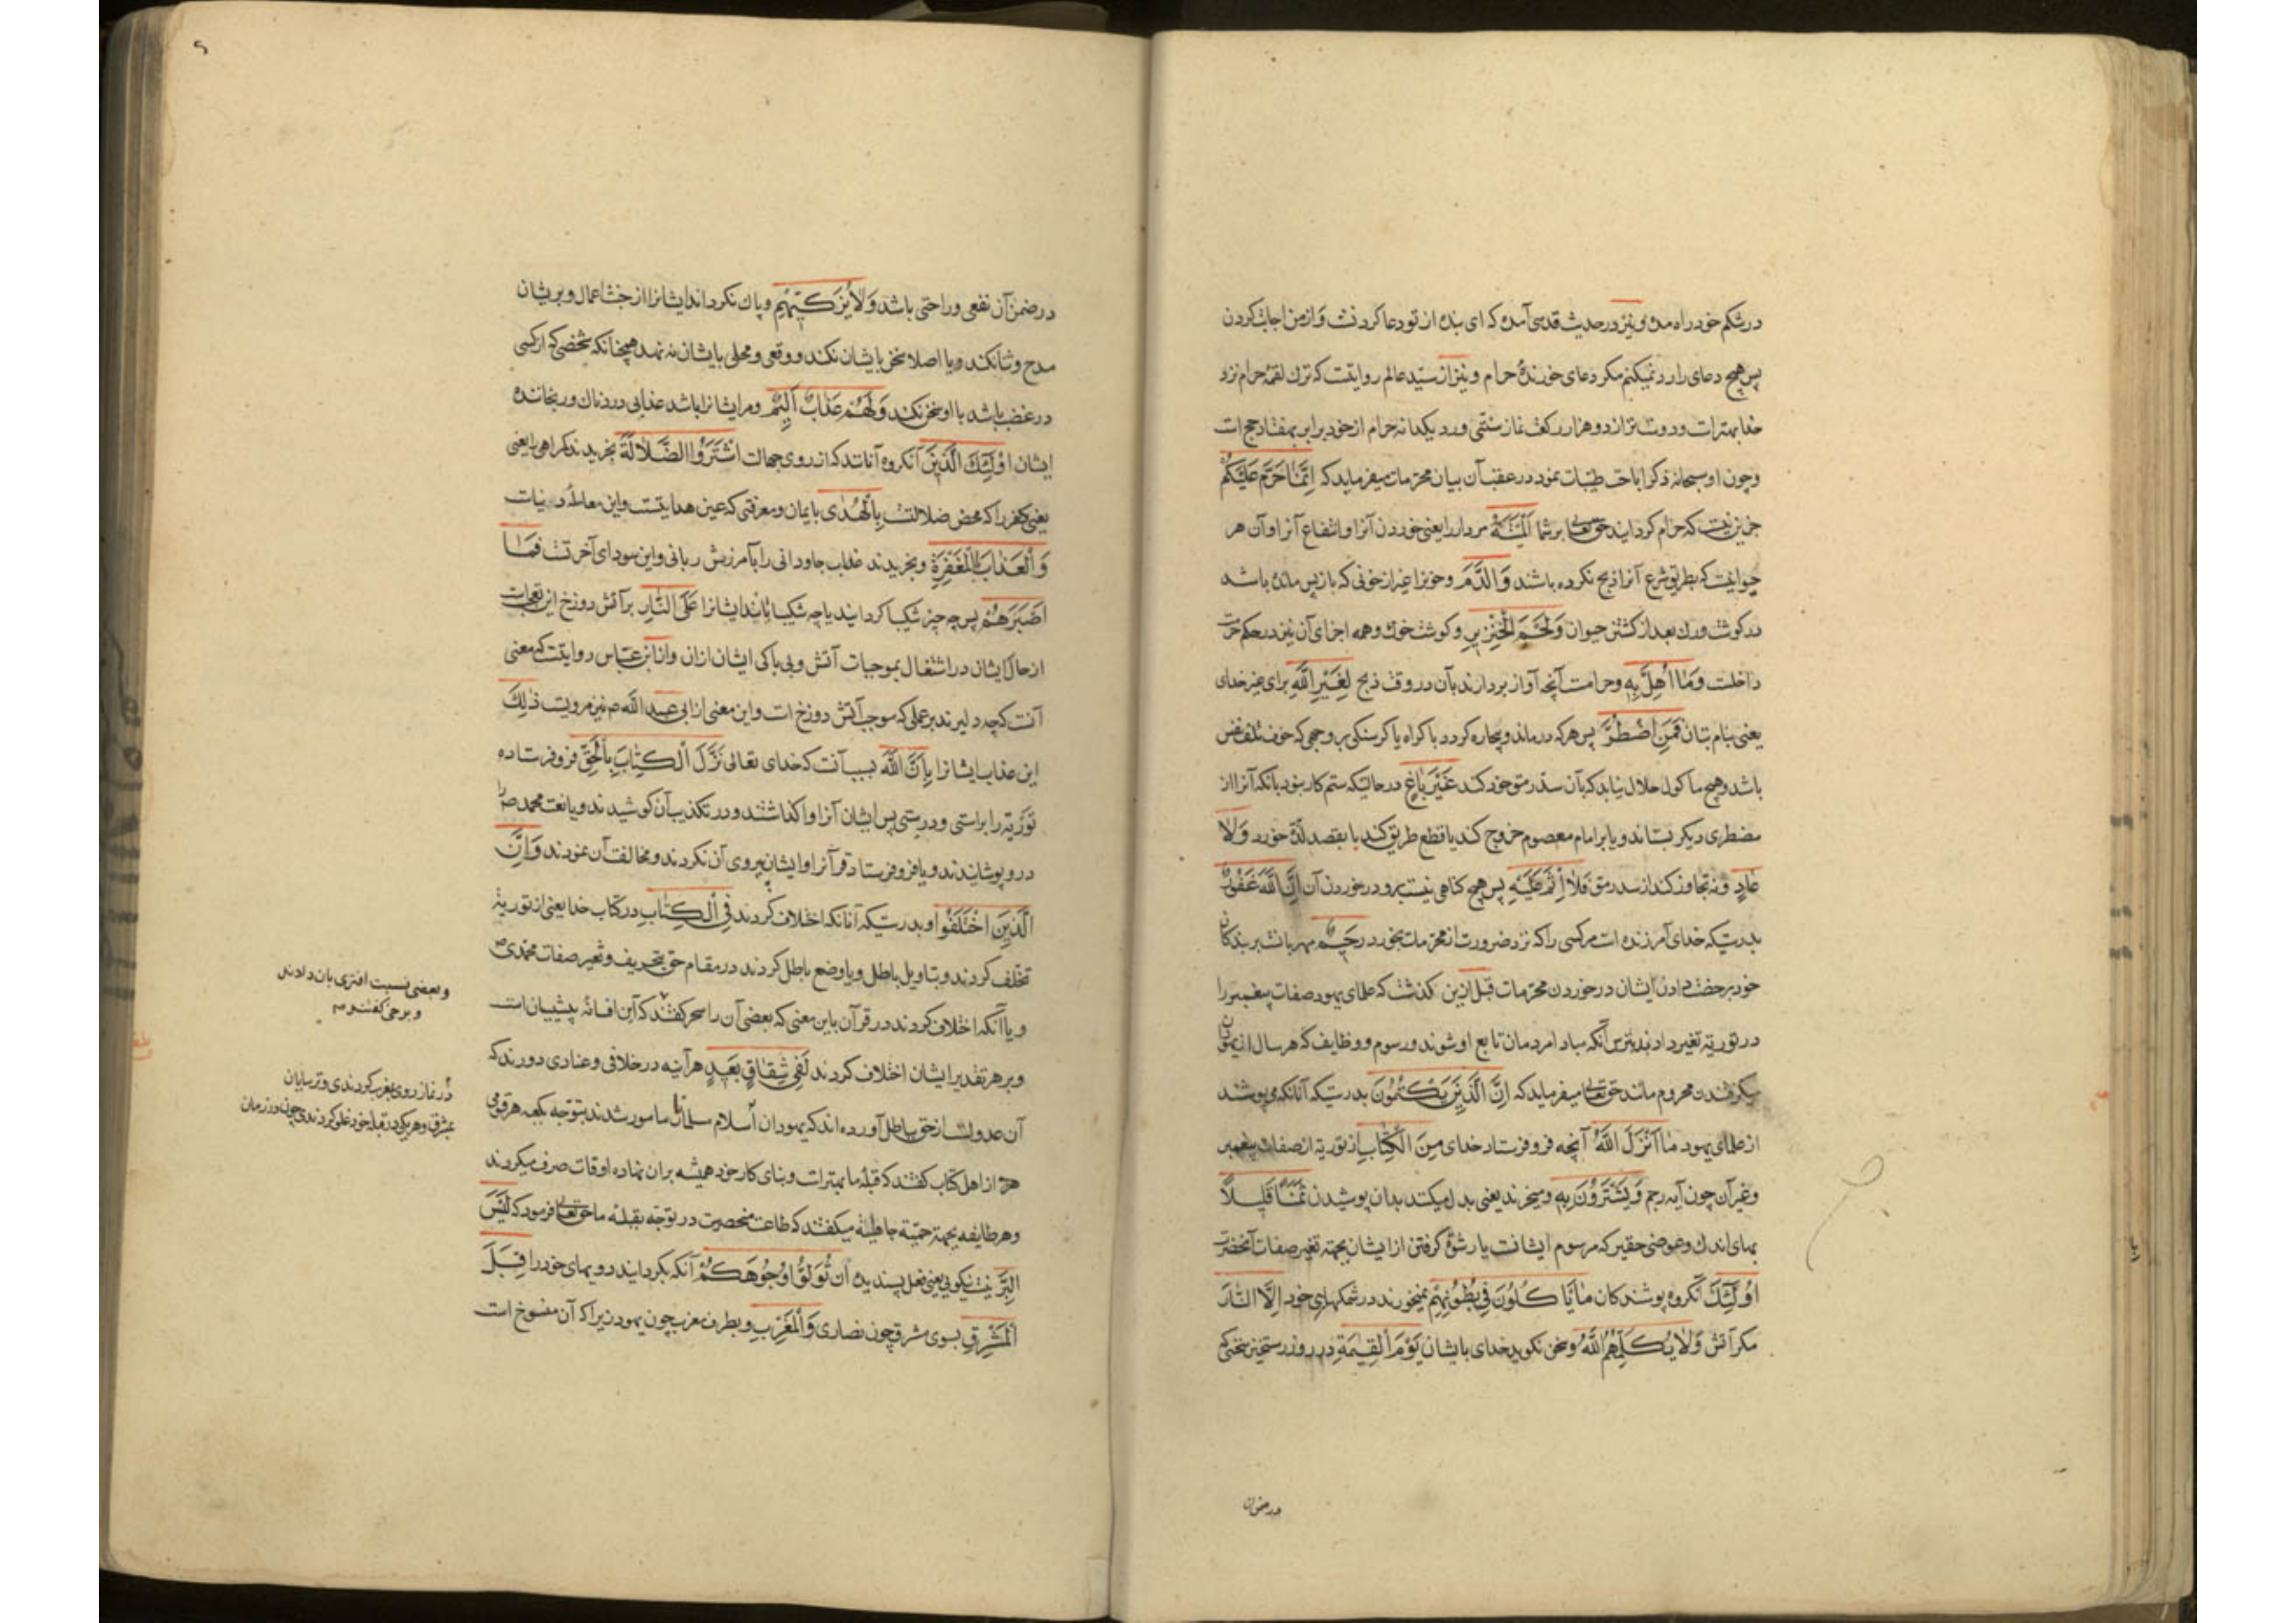 در شکم خود راه مده و نیز در حدیث قدسی آمده که ای بنده از تو دعا کردنست و از من اجابت کردن
پس هیچ دعای را رد نمیکنم مکر دعای خورندهٔ حرام و نیز از سید عالم روایتست که ترک لقمهٔ حرام نزد
خدا بهتر است و دوست تر از دو هزار رکعت نماز سنتی و رد یکدانه حرام از خود برابر هفتاد حج است
و چون او سبحانه ذکر اباحت طیبات نمود در عقب آن بیان محرمات میفرماید که اِنَّمَا حَرَّمَ عَلَیْکُمُ
جز این نیست که حرام کردانید حق تعالی بر شما اَلْمَیْتَةَ مردار را یعنی خوردن آنرا و انتفاع آنرا و آن هر
حیوانیست که بطریق شرع آنرا ذبح نکرده باشند وَالدَّمَ و خونرا غیر از خونی که باز پس مانده باشد
در کوشت و رک بعد از کشتن حیوان وَلَحْمَ الْخِنْزِیرِ و کوشت خوک و همه اجزای آن نیز در حکم حرمت
داخلست وَمَا اُهِلَّ بِهِ و حرامست آنچه آواز بردارند بآن در وقت ذبح لِغَیْرِ اللّٰهِ برای غیر خدای
یعنی بنام بتان فَمَنِ اضْطُرَّ پس هر که درماند و بیچاره کردد باکراه یا کرسنکی بر وجهی که خوف تلف نفس
باشد و هیچ ماکول حلال نیابد که بآن سد رمق خود کند غَیْرَ بَاغٍ در حالتیکه ستم کار نبود بانکه آنرا از
مضطری دیکر بستاند و یا بر امام معصوم خروج کند یا قطع طریق کند یا بقصد لذة خورد وَلَا
عَادٍ و نه تجاوز کند از سد رمق فَلَا اِثْمَ عَلَیْهِ پس هیچ کناهی نیست برو در خوردن آن اِنَّ اللّٰهَ غَفُورٌ
بدرستیکه خدای آمرزنده است مر کسی را که نزد ضرورت از محرمات بخورد رَحِیمٌ مهربانست بر بندکان
خود برخصت دادن ایشان در خوردن محرمات قبل ازین کذشت که علمای یهود صفات پیغمبر را
در توریة تغییر دادند بترس آنکه مبادا مردمان تابع او شوند و رسوم و وظایف که هر سال از یهودان
میکرفتند محروم مانند حق تعالی میفرماید که اِنَّ الَّذِینَ یَکْتُمُونَ بدرستیکه آنانکه می پوشند
از علمای یهود مَا اَنْزَلَ اللّٰهُ آنچه فرو فرستاد خدای مِنَ الْکِتَابِ از توریة از صفات پیغمبر
و غیر آن چون آیه رجم وَیَشْتَرُونَ بِهِ و میخرند یعنی بدل میکنند بدان پوشیدن ثَمَنًا قَلِیلًا
بهای اندک و عوضی حقیر که مرسوم ایشانست یا رشوة کرفتن از ایشان بجهة تغییر صفات آنحضرت
اُولٰئِکَ آنکروه پوشندکان مَا یَاْکُلُونَ فِی بُطُونِهِمْ نمیخورند در شکمهای خود اِلَّا النَّارَ
مکر آتش وَلَا یُکَلِّمُهُمُ اللّٰهُ و سخن نکوید خدای با ایشان یَوْمَ الْقِیٰمَةِ در روز رستخیز سخنی که
در ضمن آن
در ضمن آن نفعی و راحتی باشد وَلَا یُزَکِّیهِمْ و پاک نکرداند ایشانرا از خبث اعمال و بریشان
مدح و ثنا نکند و یا اصلا سخن با ایشان نکند و وقعی و محلی بایشان ننهد همچنانکه شخصی که از کسی
در غضب باشد با او سخن نکند وَلَهُمْ عَذَابٌ اَلِیمٌ و مر ایشانرا باشد عذابی دردناک و رنجاننده
ایشان اُولٰئِکَ الَّذِینَ آنکروه آنانند که از روی جهالت اشْتَرَوُا الضَّلَالَةَ بخریدند کمراهی را یعنی
یعنی کفر را که محض ضلالتست بِالْهُدٰی بایمان و معرفتی که عین هدایتست و این معامله دنیاست
وَالْعَذَابَ بِالْمَغْفِرَةِ و بخریدند عذاب جاودانی را بآمرزش ربانی و این سودای آخرتست فَمَا
اَصْبَرَهُمْ پس چه چیز شکیبا کردانید یا چه شکیبا یانند ایشانرا عَلَی النَّارِ بر آتش دوزخ این تعجبست
از حال ایشان در اشتغال بموجبات آتش و بی باکی ایشان ازان و از ابن عباس روایتست که معنی
آنست که چه دلیرند بر عملی که موجب آتش دوزخ است و این معنی از ابی عبد اللّٰه ع نیز مرویست ذٰلِکَ
این عذاب ایشانرا بِاَنَّ اللّٰهَ بسبب آنست که خدای تعالی نَزَّلَ الْکِتَابَ بِالْحَقِّ فرو فرستاده
توریة را براستی و درستی پس ایشان آنرا واکذاشتند و در تکذیب آن کوشیدند و یا نعت محمد ص را
درو پوشانیدند و یا فرو فرستاد قرآنرا و ایشان پیروی آن نکردند و مخالفت آن نمودند وَاِنَّ
الَّذِینَ اخْتَلَفُوا و بدرستیکه آنانکه اختلاف کردند فِی الْکِتَابِ در کتاب خدا یعنی از توریة
تخلف کردند و بتاویل باطل و یا وضع باطل کردند در مقام حق بتحریف و تغییر صفات محمدی ص
و یا آنکه اختلاف کردند در قرآن باین معنی که بعضی آن را سحر کفتند که این افسانه پیشینیان است
و بعضی نسبت افتری بان دادند
و برخی کفتند
و بر هر تقدیر ایشان اختلاف کردند لَفِی شِقَاقٍ بَعِیدٍ هر آینه در خلافی و عنادی دورند که
آن عدولست از حق بباطل آورده اند که یهودان اسلام مسلمانان مامور شدند بتوجه بکعبه هر قومی
در نماز روی بمغرب کردندی و ترسایان
بمشرق و هر یکی در قبله خود غلو کردندی چون در زمان
از اهل کتاب کفتند که قبله ما بهتر است و بنای کار خود همیشه بران نهاده اوقات صرف میکردند
و هر طایفه بجهة حمیة جاهلیة میکفتند که طاعت منحصرست در توجه بقبله ما حق تعالی فرمود که لَیْسَ
الْبِرَّ نیست نیکویی یعنی فعل پسندیده اَنْ تُوَلُّوا وُجُوهَکُمْ آنکه بکردانید رویهای خود را قِبَلَ
الْمَشْرِقِ بسوی مشرق چون نصاری وَالْمَغْرِبِ و بطرف مغرب چون یهود زیرا که آن منسوخ است